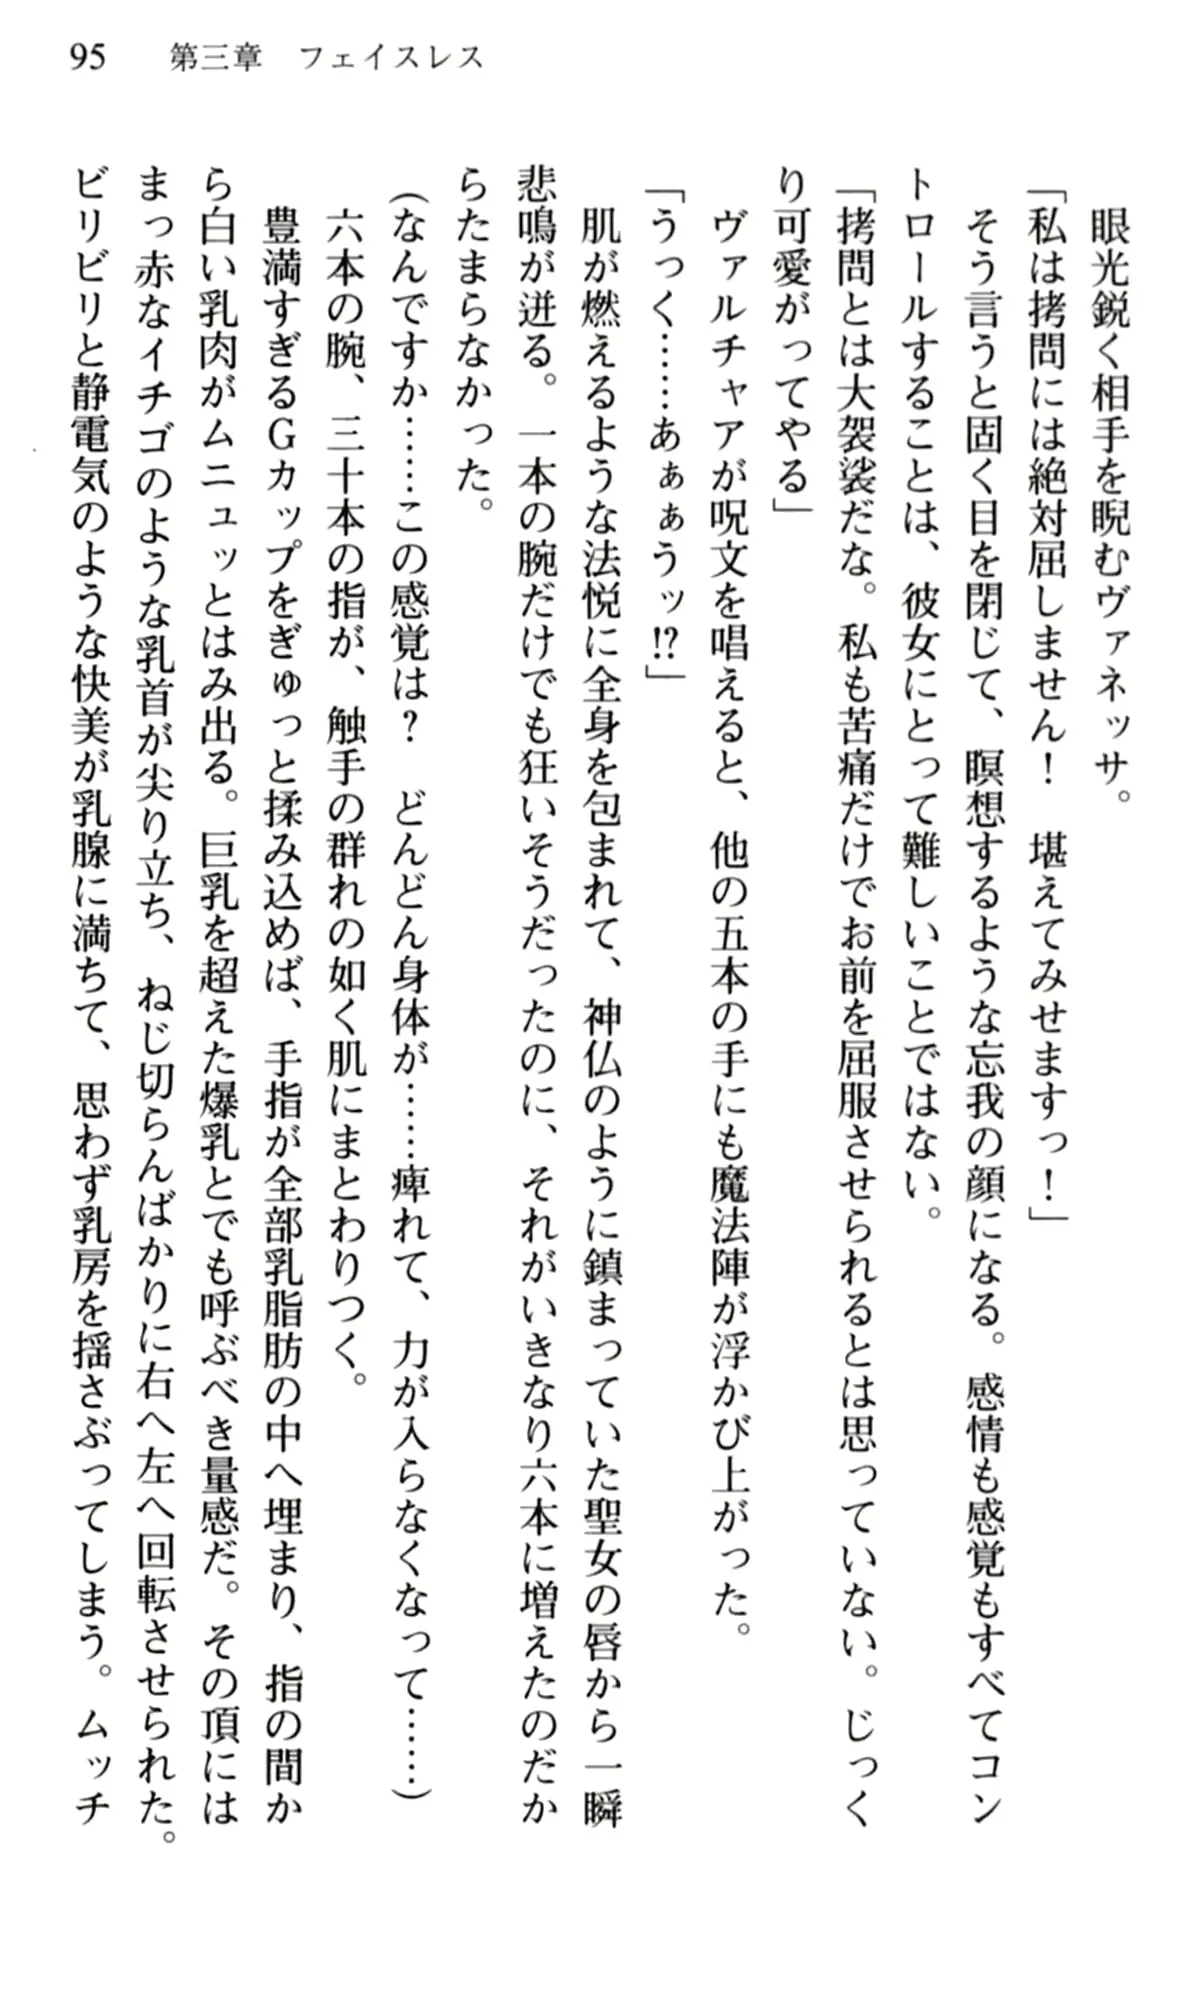 95　第三章　フェイスレス
　眼光鋭く相手を睨むヴァネッサ。
「私は拷問には絶対屈しません！　堪えてみせますっ！」
　そう言うと固く目を閉じて、瞑想するような忘我の顔になる。感情も感覚もすべてコン
トロールすることは、彼女にとって難しいことではない。
「拷問とは大袈裟だな。私も苦痛だけでお前を屈服させられるとは思っていない。じっく
り可愛がってやる」
　ヴァルチャアが呪文を唱えると、他の五本の手にも魔法陣が浮かび上がった。
「うっく……あぁぁうッ!?」
　肌が燃えるような法悦に全身を包まれて、神仏のように鎮まっていた聖女の唇から一瞬
悲鳴が迸る。一本の腕だけでも狂いそうだったのに、それがいきなり六本に増えたのだか
らたまらなかった。
（なんですか……この感覚は？　どんどん身体が……痺れて、力が入らなくなって……）
　六本の腕、三十本の指が、触手の群れの如く肌にまとわりつく。
　豊満すぎるGカップをぎゅっと揉み込めば、手指が全部乳脂肪の中へ埋まり、指の間か
ら白い乳肉がムニュッとはみ出る。巨乳を超えた爆乳とでも呼ぶべき量感だ。その頂には
まっ赤なイチゴのような乳首が尖り立ち、ねじ切らんばかりに右へ左へ回転させられた。
ビリビリと静電気のような快美が乳腺に満ちて、思わず乳房を揺さぶってしまう。ムッチ